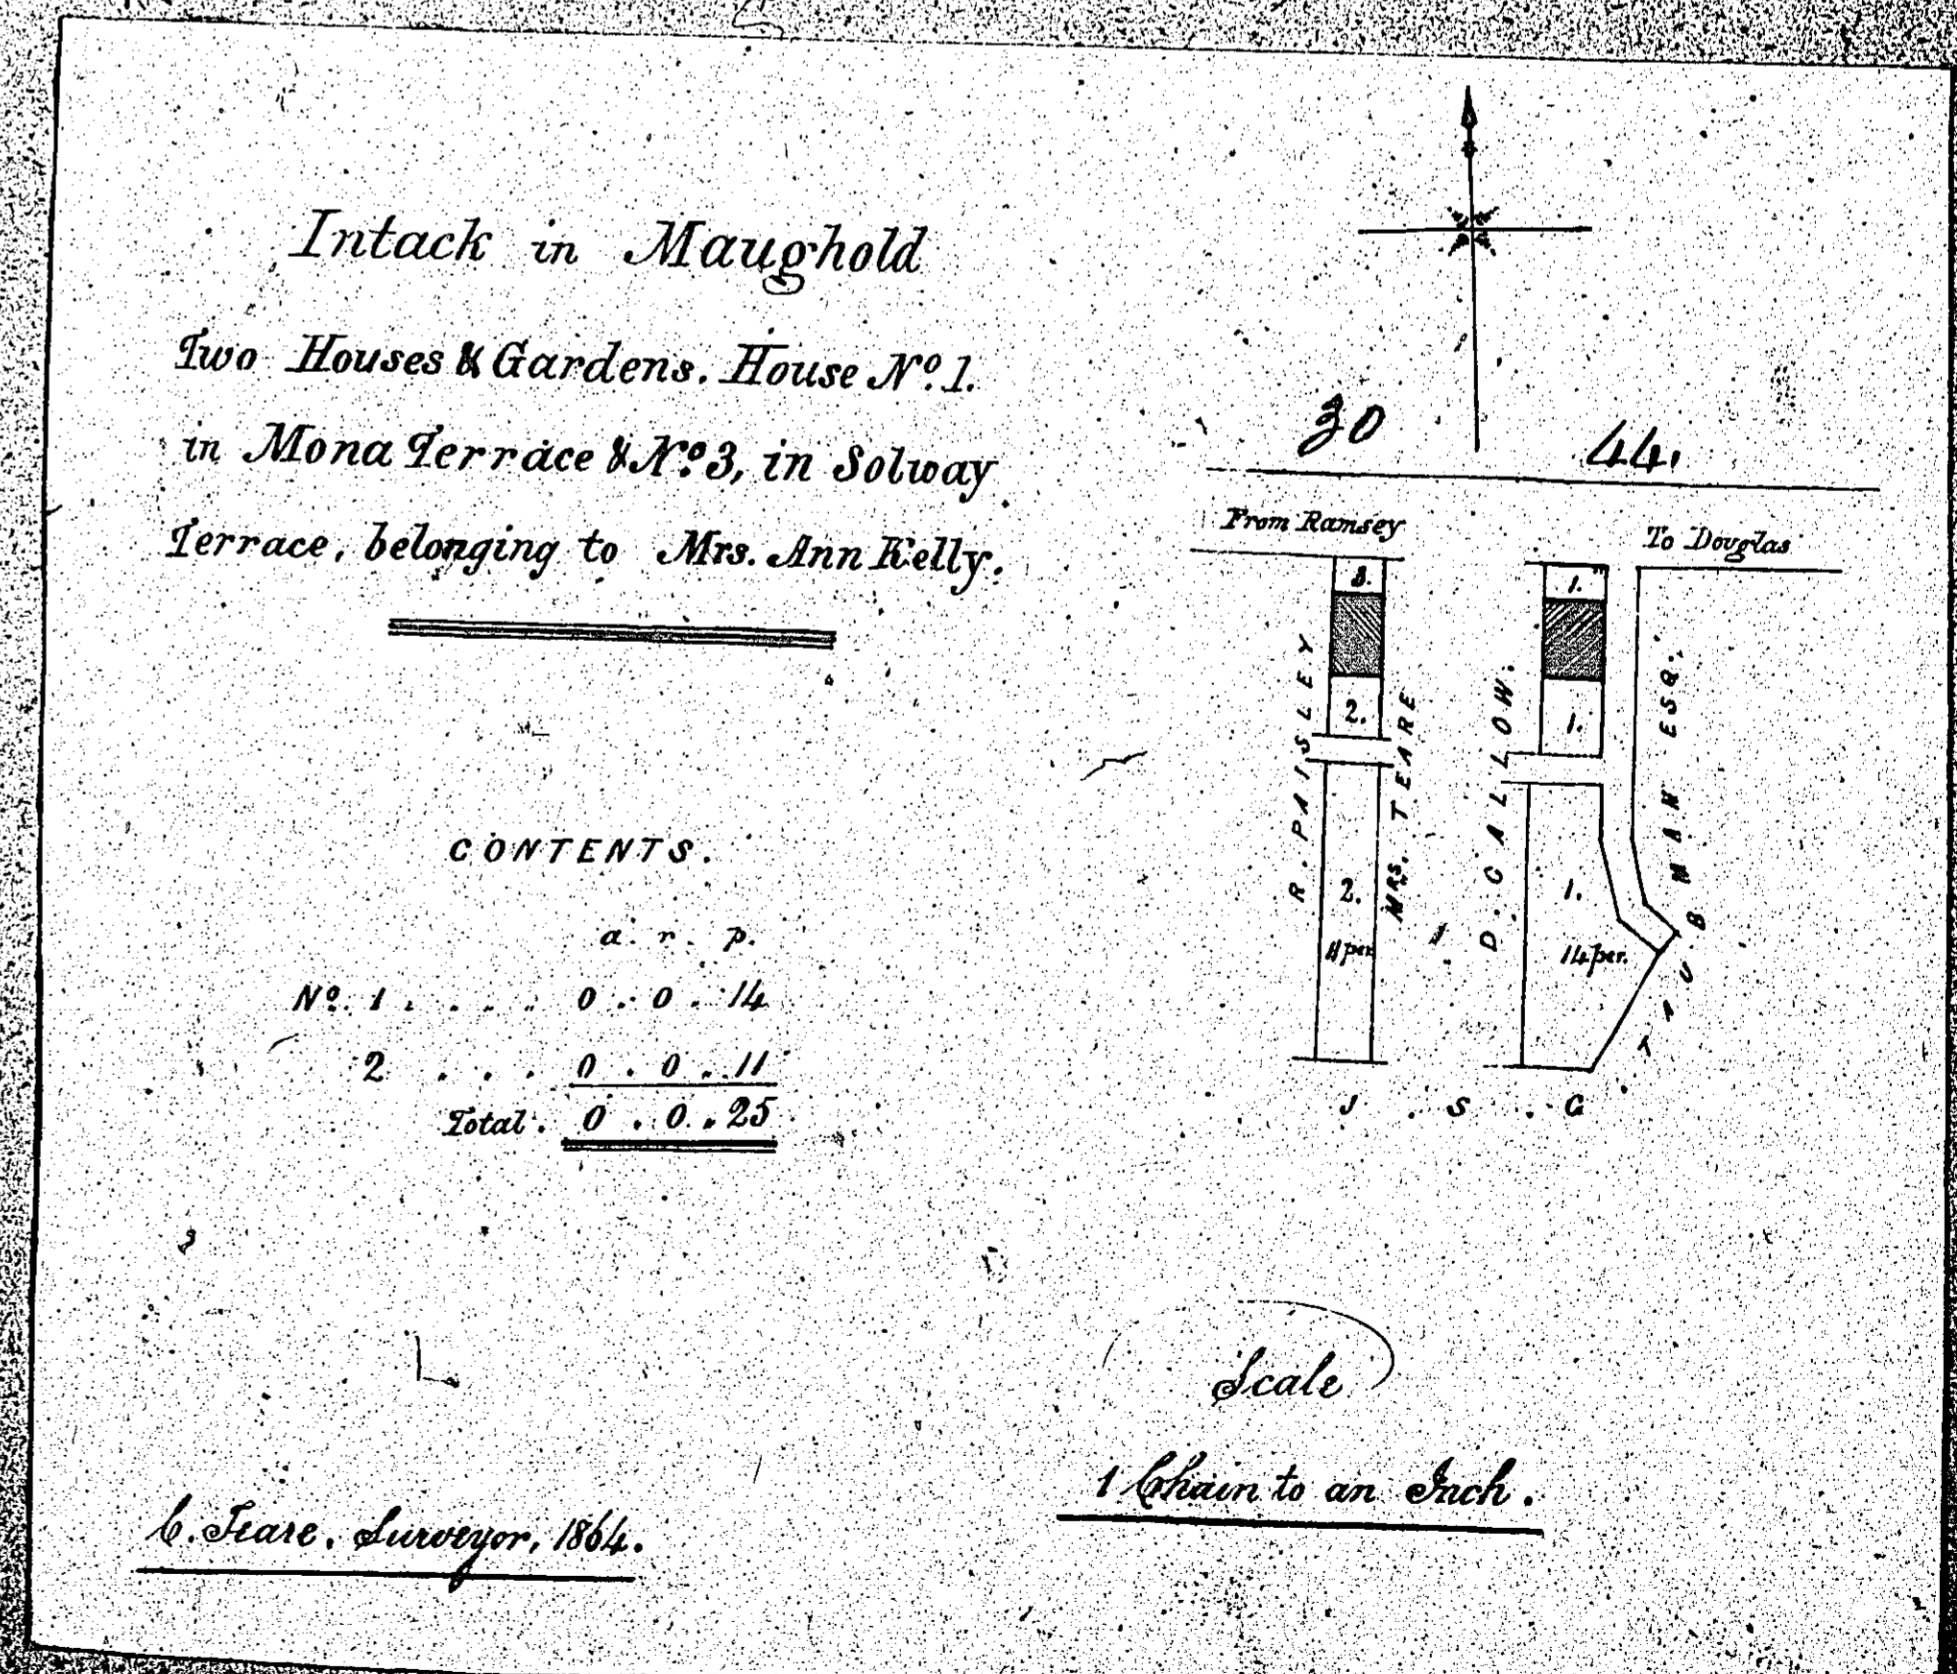 Intack in Maughold
Two Houses & Gardens. House Nº. 1.
in Mona Terrace & Nº. 3, in Solway
Terrace, belonging to Mrs. Ann Kelly.
CONTENTS.
a. r. p.
Nº. 1 . . . . . 0 . 0 . 14
2 . . . 0 . 0 . 11
Total. 0 . 0 . 25
C. Teare. Surveyor, 1864.
30 44.
From Ramsey
To Douglas
1.
2.
1.
2.
1.
11 per
14 per.
R. PAISLEY
MRS. TEARE
D. CALLOW.
TAUBMAN ESQ.
J. S. G
Scale
1 Chain to an Inch.